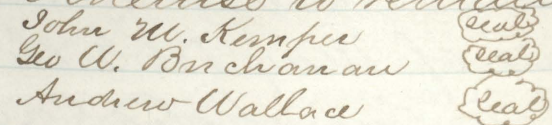 to remain
John M. Kemper seal
Geo W. Buchanan seal
Andrew Wallace seal